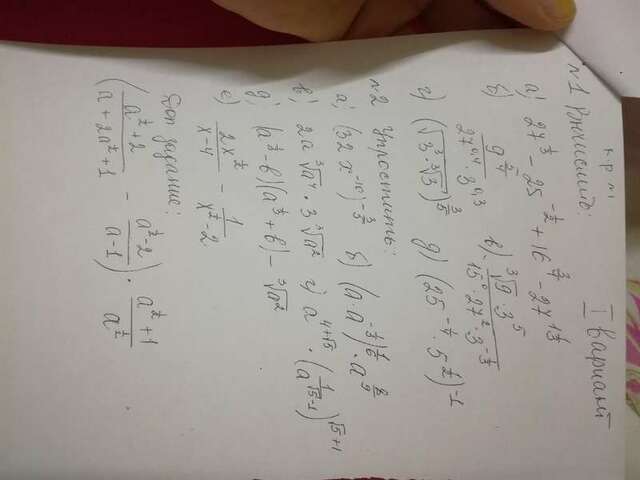 к.р. №1
I вариант
№1 Вычислить:
а) 27^{1/3} - 25^{-1/2} + 16^{3/4} - 27^{1 1/3}
б) 9^{2/4} / (27^{0,4} · 3^{0,3}) в) (∛9 · 3^5) / (15^0 · 27^2 · 3^{-1/3})
г) (√3 · ∛3)^{3/5} д) (25^{-1/4} · 5^{1/2})^{-1}
№2 Упростить:
а) (32x^{-10})^{-3/5} б) (a · a^{-1/3})^{1/6} · a^{8/9}
в) 2a ∛a⁴ · 3 ∛a² г) a^{4+√3} · (1/a^{√3-1})^{√3+1}
д) (a^{1/3} - b)(a^{1/3} + b) - ∛a²
е) 2x^{1/2}/(x-4) - 1/(x^{1/2}-2)
Доп задание:
((a^{1/2}+2)/(a+2a^{1/2}+1) - (a^{1/2}-2)/(a-1)) · (a^{1/2}+1)/a^{1/2}